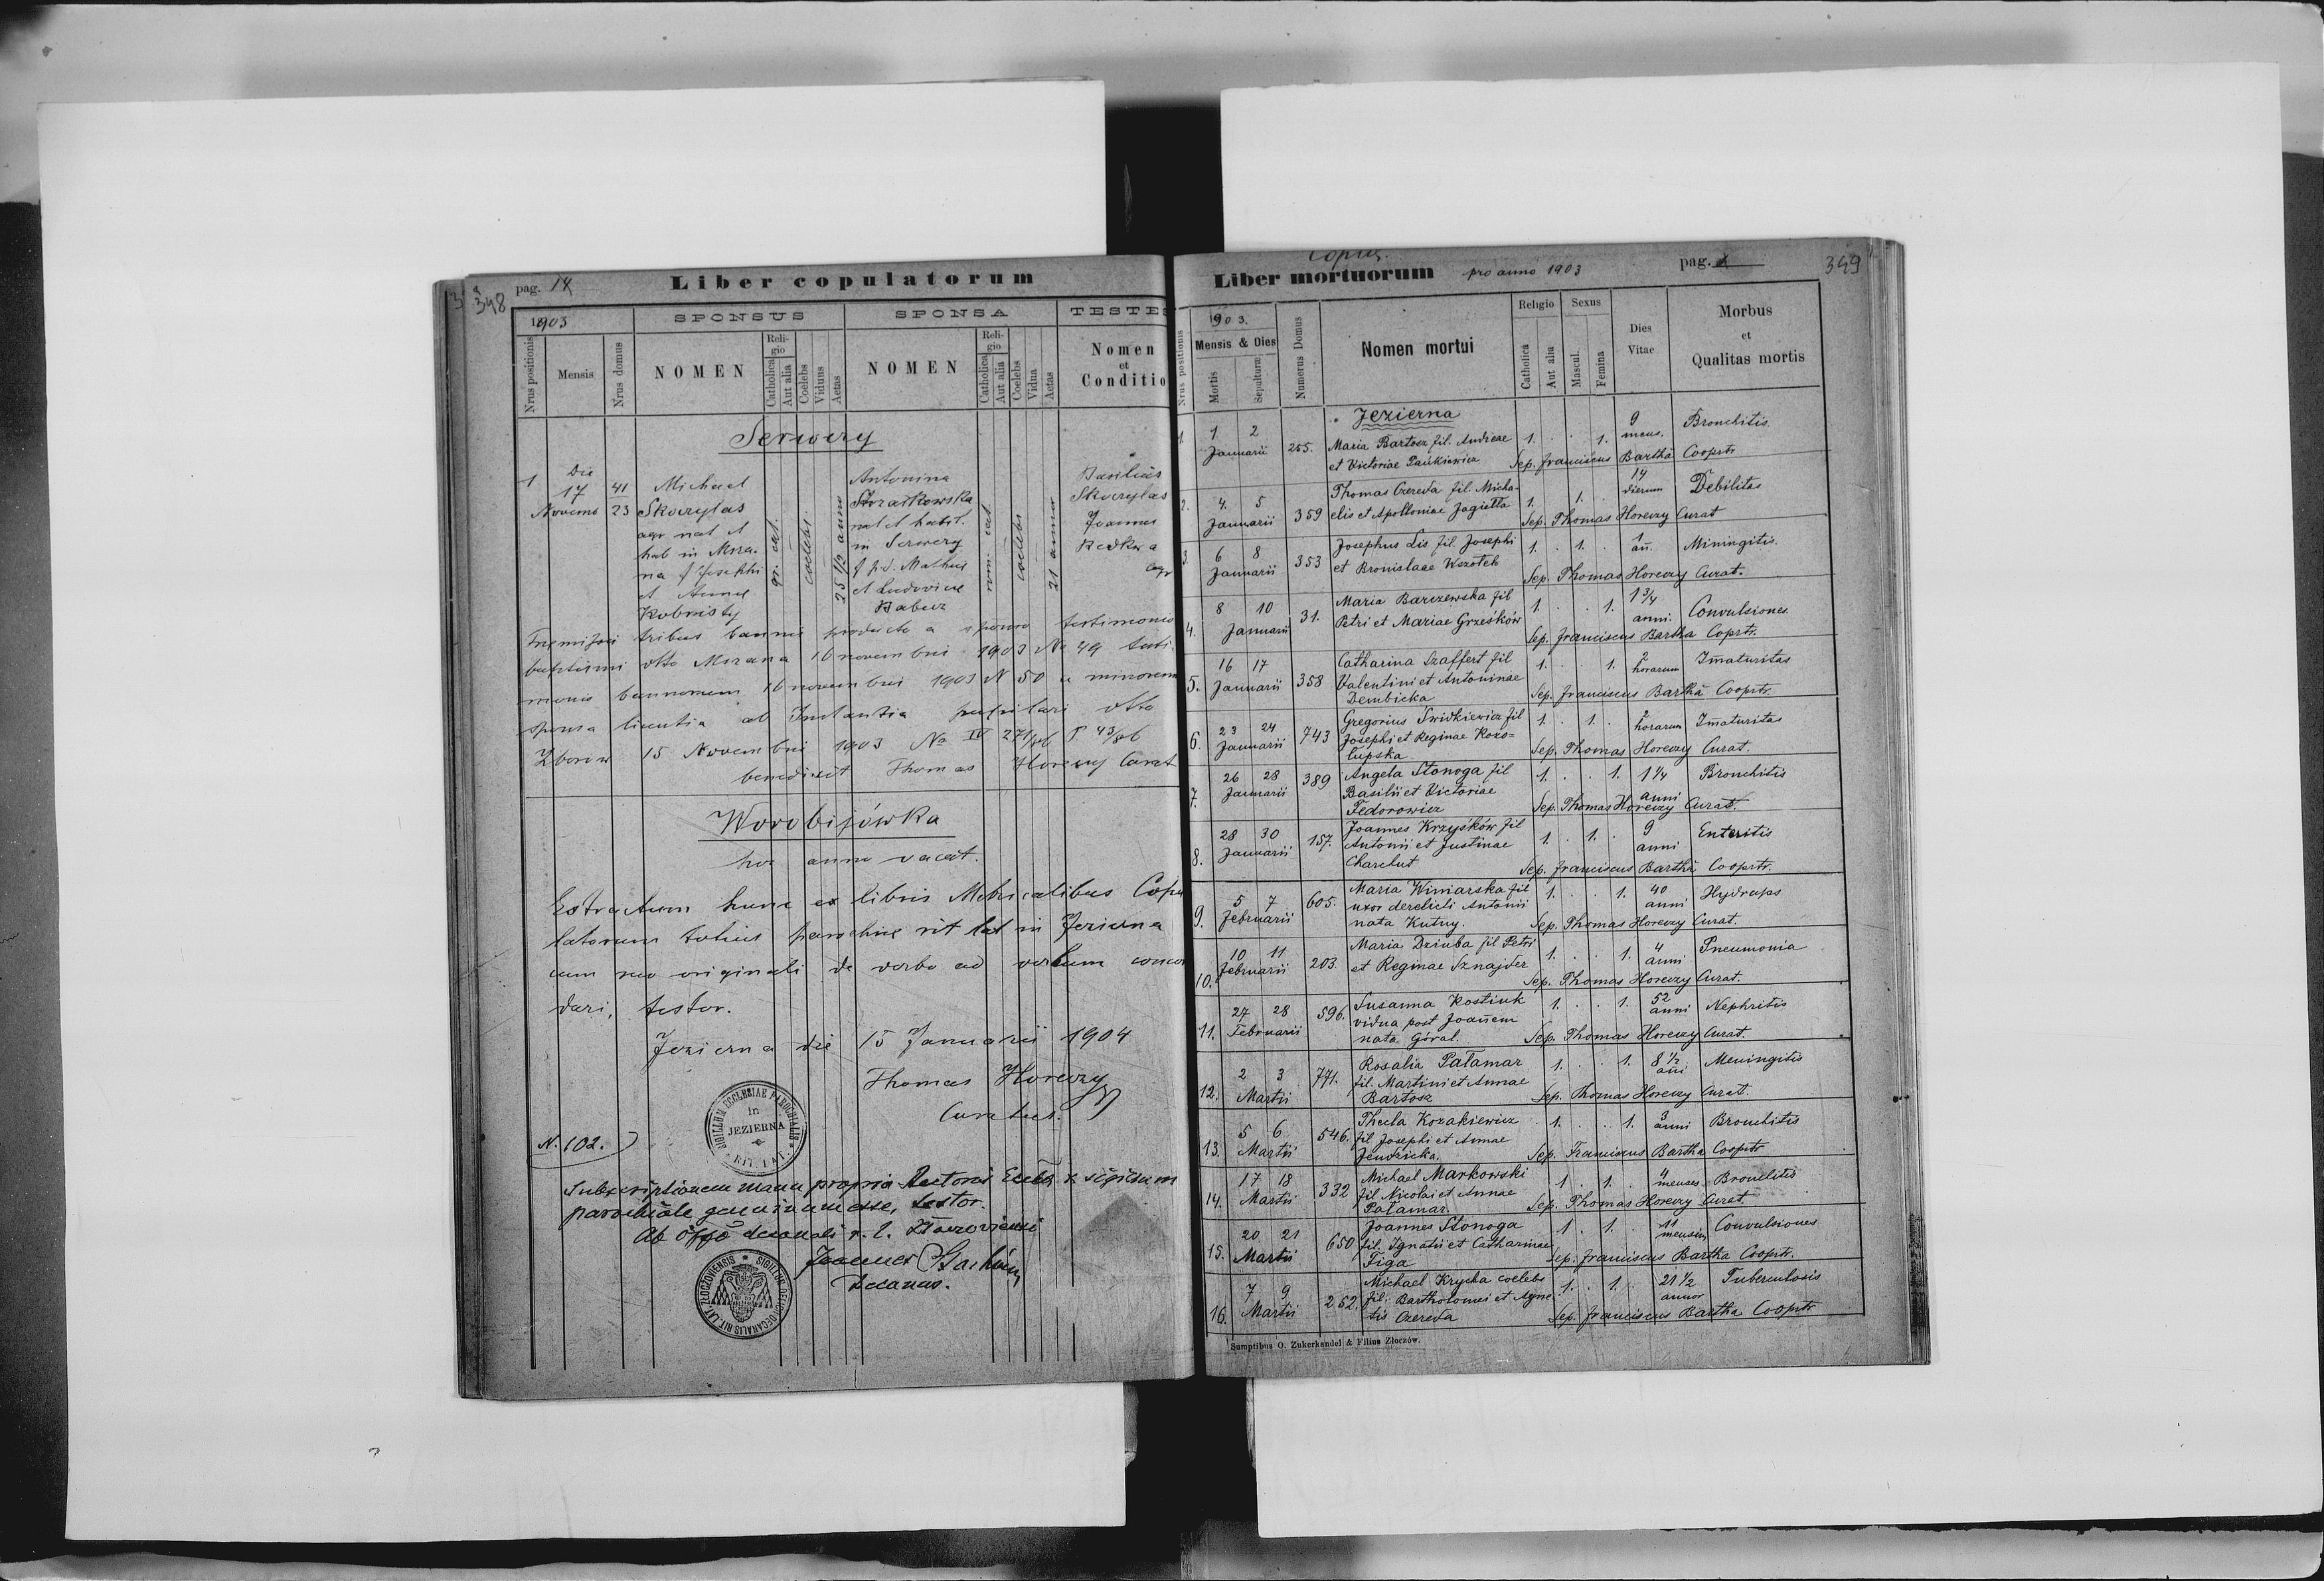 348
pag. 14
Liber copulatorum
1903
SPONSUS
SPONSA
TESTES
Nrus positionis
Mensis
Nrus domus
NOMEN
Religio
Catholica
Aut alia
Coelebs
Viduus
Aetas
NOMEN
Religio
Catholica
Aut alia
Coelebs
Vidua
Aetas
Nomen
et
Conditio
Serwery
1
Die
17
Novemb
41
23
Michael
Skorylas
agr nat et
hab in Mszana
f Josephi
et Annae
Kobristy
gr. cat.
coelebs
25 1/2 anno
Antonina
nat et habit.
in Serwery
f p.d. Mathei
et Ludovicae
Babuz
rom. cat
coelebs
21 annor
Basilius
Skorylas
Joannes
Redkwa
agr
Premissis tribus bannis producto a sponso testimonio
baptismi dtto Mszana 16 novembris 1903 N 49 testi
monio bannorum 16 novembris 1903 N 50 a minorenn
sponsa licentia ab Instantia pupilari dtto
Zborow 15 Novembris 1903 No IV 271/86 P. 43/86
benedixit Thomas Horeczy Curat
Worobijówka
hoc anno vacat.
Extractum hunc ex libris Metricalibus Copu
latorum totius parochiae rit lat in Jezierna
cum suo originali de verbo ad verbum concor
dari, testor.
Jezierna die 15 Januarii 1904
Thomas Horeczy
Curatus.
SIGILLUM ECCLESIAE PAROCHIALIS
in
JEZIERNA
RIT. LAT.
N. 102.
Subscriptionem manu propria Rectoris Eccles & sigillum
parochiale genuinum esse, testor.
Ab offo decanali r. l. Złoczoviensi
Joannes
Decanus.
SIGILLUM OFFICII DECANALIS RIT. LAT. ZŁOCZOVIENSIS
Copia.
Liber mortuorum pro anno 1903
pag.
349
1903.
Nrus positionis
Mensis & Dies
Mortis
Sepulturae
Numerus Domus
Nomen mortui
Religio
Catholica
Aut alia
Sexus
Mascul.
Femina
Dies
Vitae
Morbus
et
Qualitas mortis
Jezierna
1. 1 2 Januarii 255. Maria Bartosz fil. Andreae 1. 1. 9 mens. Bronchitis
et Victoriae Pańkiewicz Sep. Franciscus Bartha Cooprtr
2. 4. 5 Januarii 359 Thomas Czereda fil. Micha- 1. 1. 14 dierum Debilitas
elis et Apolloniae Jagiełła Sep. Thomas Horeczy Curat
3. 6 8 Januarii 353 Josephus Lis fil. Josephi 1. 1. 1 an. Miningitis
et Bronislaae Wszołek Sep. Thomas Horeczy Curat.
4. 8 10 Januarii 31. Maria Barczewska fil 1. 1. 1 3/4 anni. Convulsiones
Petri et Mariae Grześków Sep. Franciscus Bartha Coprtr.
5. 16 17 Januarii 358 Catharina Szaffert fil 1. 1. 2 horarum Imaturitas
Valentini et Antoninae
Dembicka Sep. Franciscus Bartha Cooprtr.
6. 23 24 Januarii 743 Gregorius Swidkiewicz fil 1. 1. 2 horarum Imaturitas
Josephi et Reginae Kozo=
łupska Sep. Thomas Horeczy Curat.
7. 26 28 Januarii 389 Angela Stonoga fil 1. 1. 1 1/4 anni Bronchitis
Basilii et Victoriae
Fedorowicz Sep. Thomas Horeczy Curat.
8. 28 30 Januarii 157. Joannes Krzyśków fil 1. 1. 9 anni Enteritis
Antonii et Justinae
Charchut Sep. Franciscus Bartha Cooprtr.
9. 5 7 Februarii 605. Maria Winiarska fil 1. 1. 40 anni Hydraps
uxor derelicti Antonii
nata Kutny. Sep. Thomas Horeczy Curat.
10. 10 11 Februarii 203. Maria Dziuba fil Petri 1. 1. 4 anni Pneumonia
et Reginae Sznajder Sep. Thomas Horeczy Curat.
11. 27 28 Februarii 596. Susanna Kostiuk 1. 1. 52 anni Nephritis
vidua post Joañem
nata Góral. Sep. Thomas Horeczy Curat.
12. 2 3 Martii 771. Rosalia Pałamar 1. 1. 8 1/2 ani Meningitis
fil. Martini et Annae
Bartosz Sep. Thomas Horeczy Curat.
13. 5 6 Martii 546. Thecla Kozakiewicz 1. 1. 3 anni Bronchitis
fil Josephi et Annae
Jendricka. Sep. Franciscus Bartha Cooprtr
14. 17 18 Martii 332 Michael Markowski 1 1. 4 menses Bronchitis
fil Nicolai et Annae
Pałamar. Sep. Thomas Horeczy Curat.
15. 20 21 Martii 650 Joannes Stonoga 1. 1. 11 mensium Convulsiones
fil. Ignatii et Catharinae
Figa Sep. Franciscus Bartha Cooprtr.
16. 7 9 Martii 252. Michael Krycha coelebs 1. 1. 21 1/2 annor Tuberculosis
fil: Bartholomei et Agne
tis Czereda Sep. Franciscus Bartha Cooprtr
Sumptibus O. Zukerkandel & Filius Złoczów.